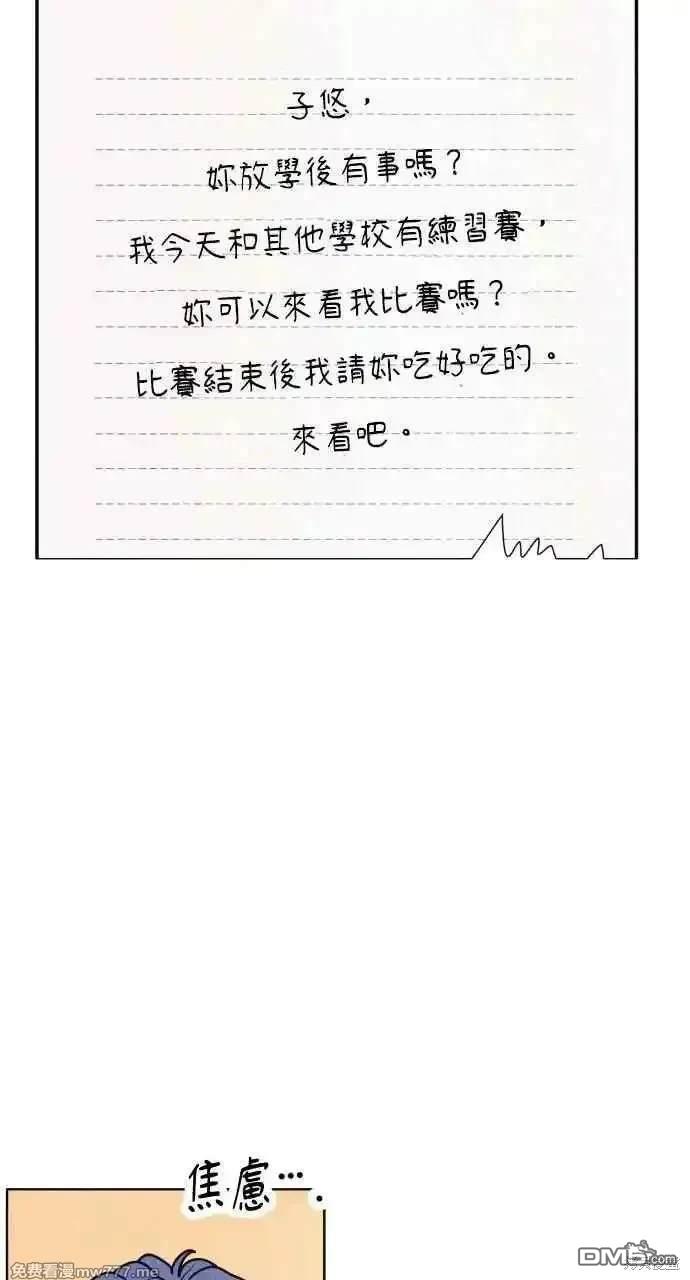 子悠，
妳放學後有事嗎？
我今天和其他學校有練習賽，
妳可以來看我比賽嗎？
比賽結束後我請妳吃好吃的。
來看吧。
焦慮⋯.
免费看漫mw777.me
DM5